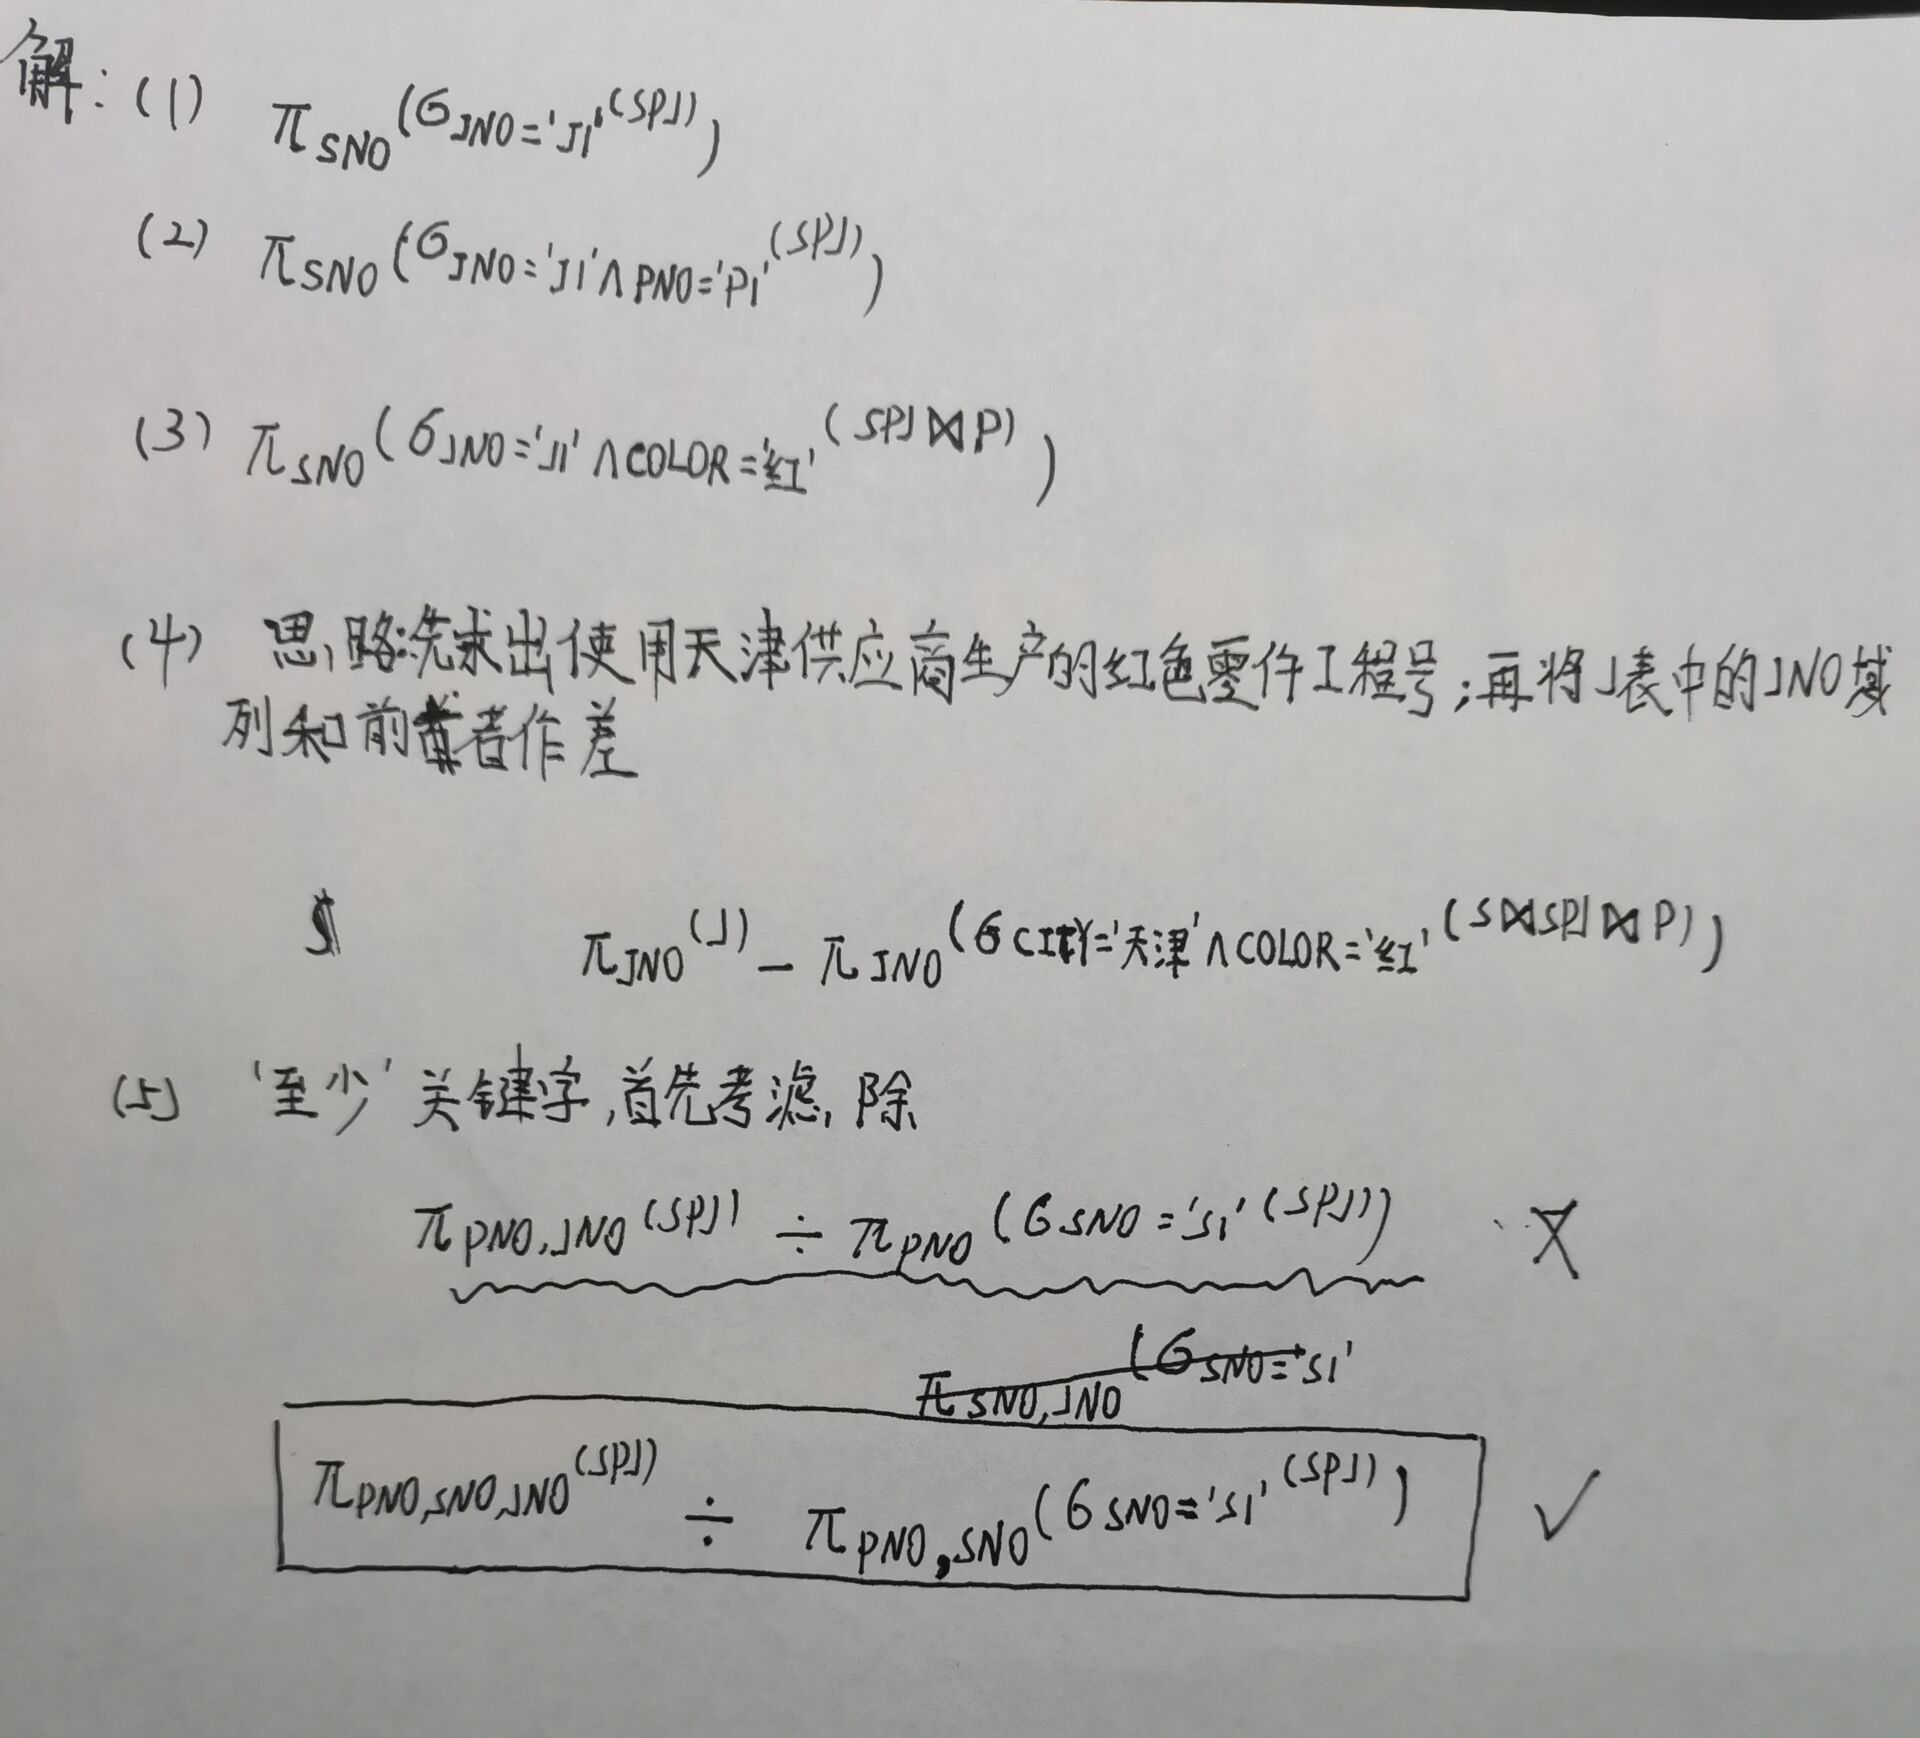 解: (1) π SNO (σ JNO='J1' (SPJ))
(2) π SNO (σ JNO='J1'∧PNO='P1' (SPJ))
(3) π SNO (σ JNO='J1'∧COLOR='红' (SPJ⋈P))
(4) 思路:先求出使用天津供应商生产的红色零件工程号;再将J表中的JNO域
列和前者作差
π JNO (J) - π JNO (σ CITY='天津'∧COLOR='红' (S⋈SPJ⋈P))
(5) '至少'关键字,首先考滤,除
π PNO,JNO (SPJ) ÷ π PNO (σ SNO='S1' (SPJ)) X
π SNO,JNO (σ SNO='S1'
π PNO,SNO,JNO (SPJ) ÷ π PNO,SNO (σ SNO='S1' (SPJ)) ✓